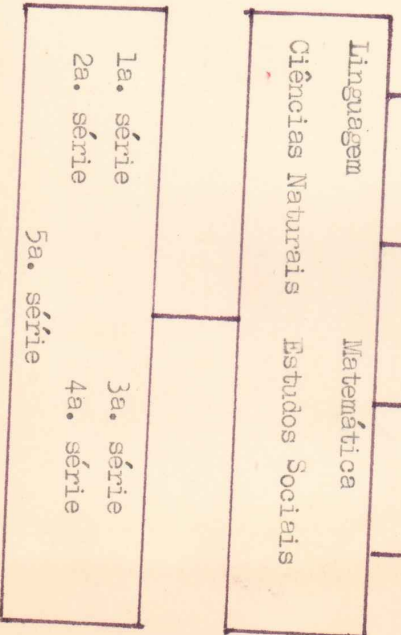 Linguagem Matemática
Ciências Naturais Estudos Sociais
1a. série 3a. série
2a. série 4a. série
5a. série